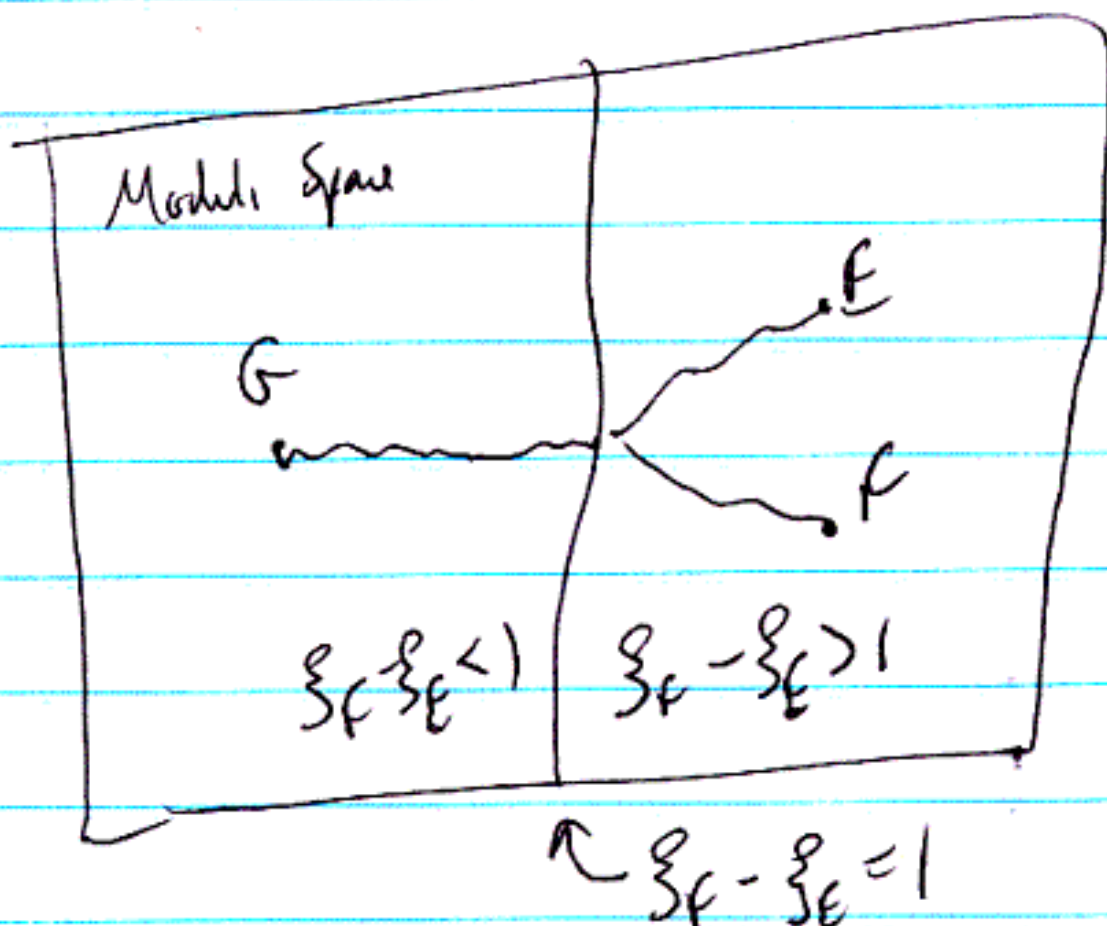 Moduli Space
E
G
F
ξ_F - ξ_E < 1 ξ_F - ξ_E > 1
ξ_F - ξ_E = 1